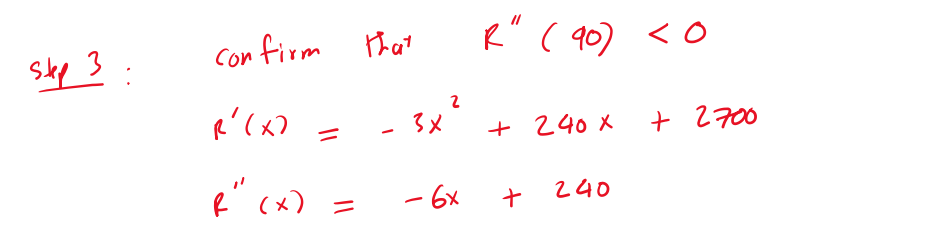 Step 3 : confirm that R''(90) < 0
R'(x) = -3x² + 240x + 2700
R''(x) = -6x + 240